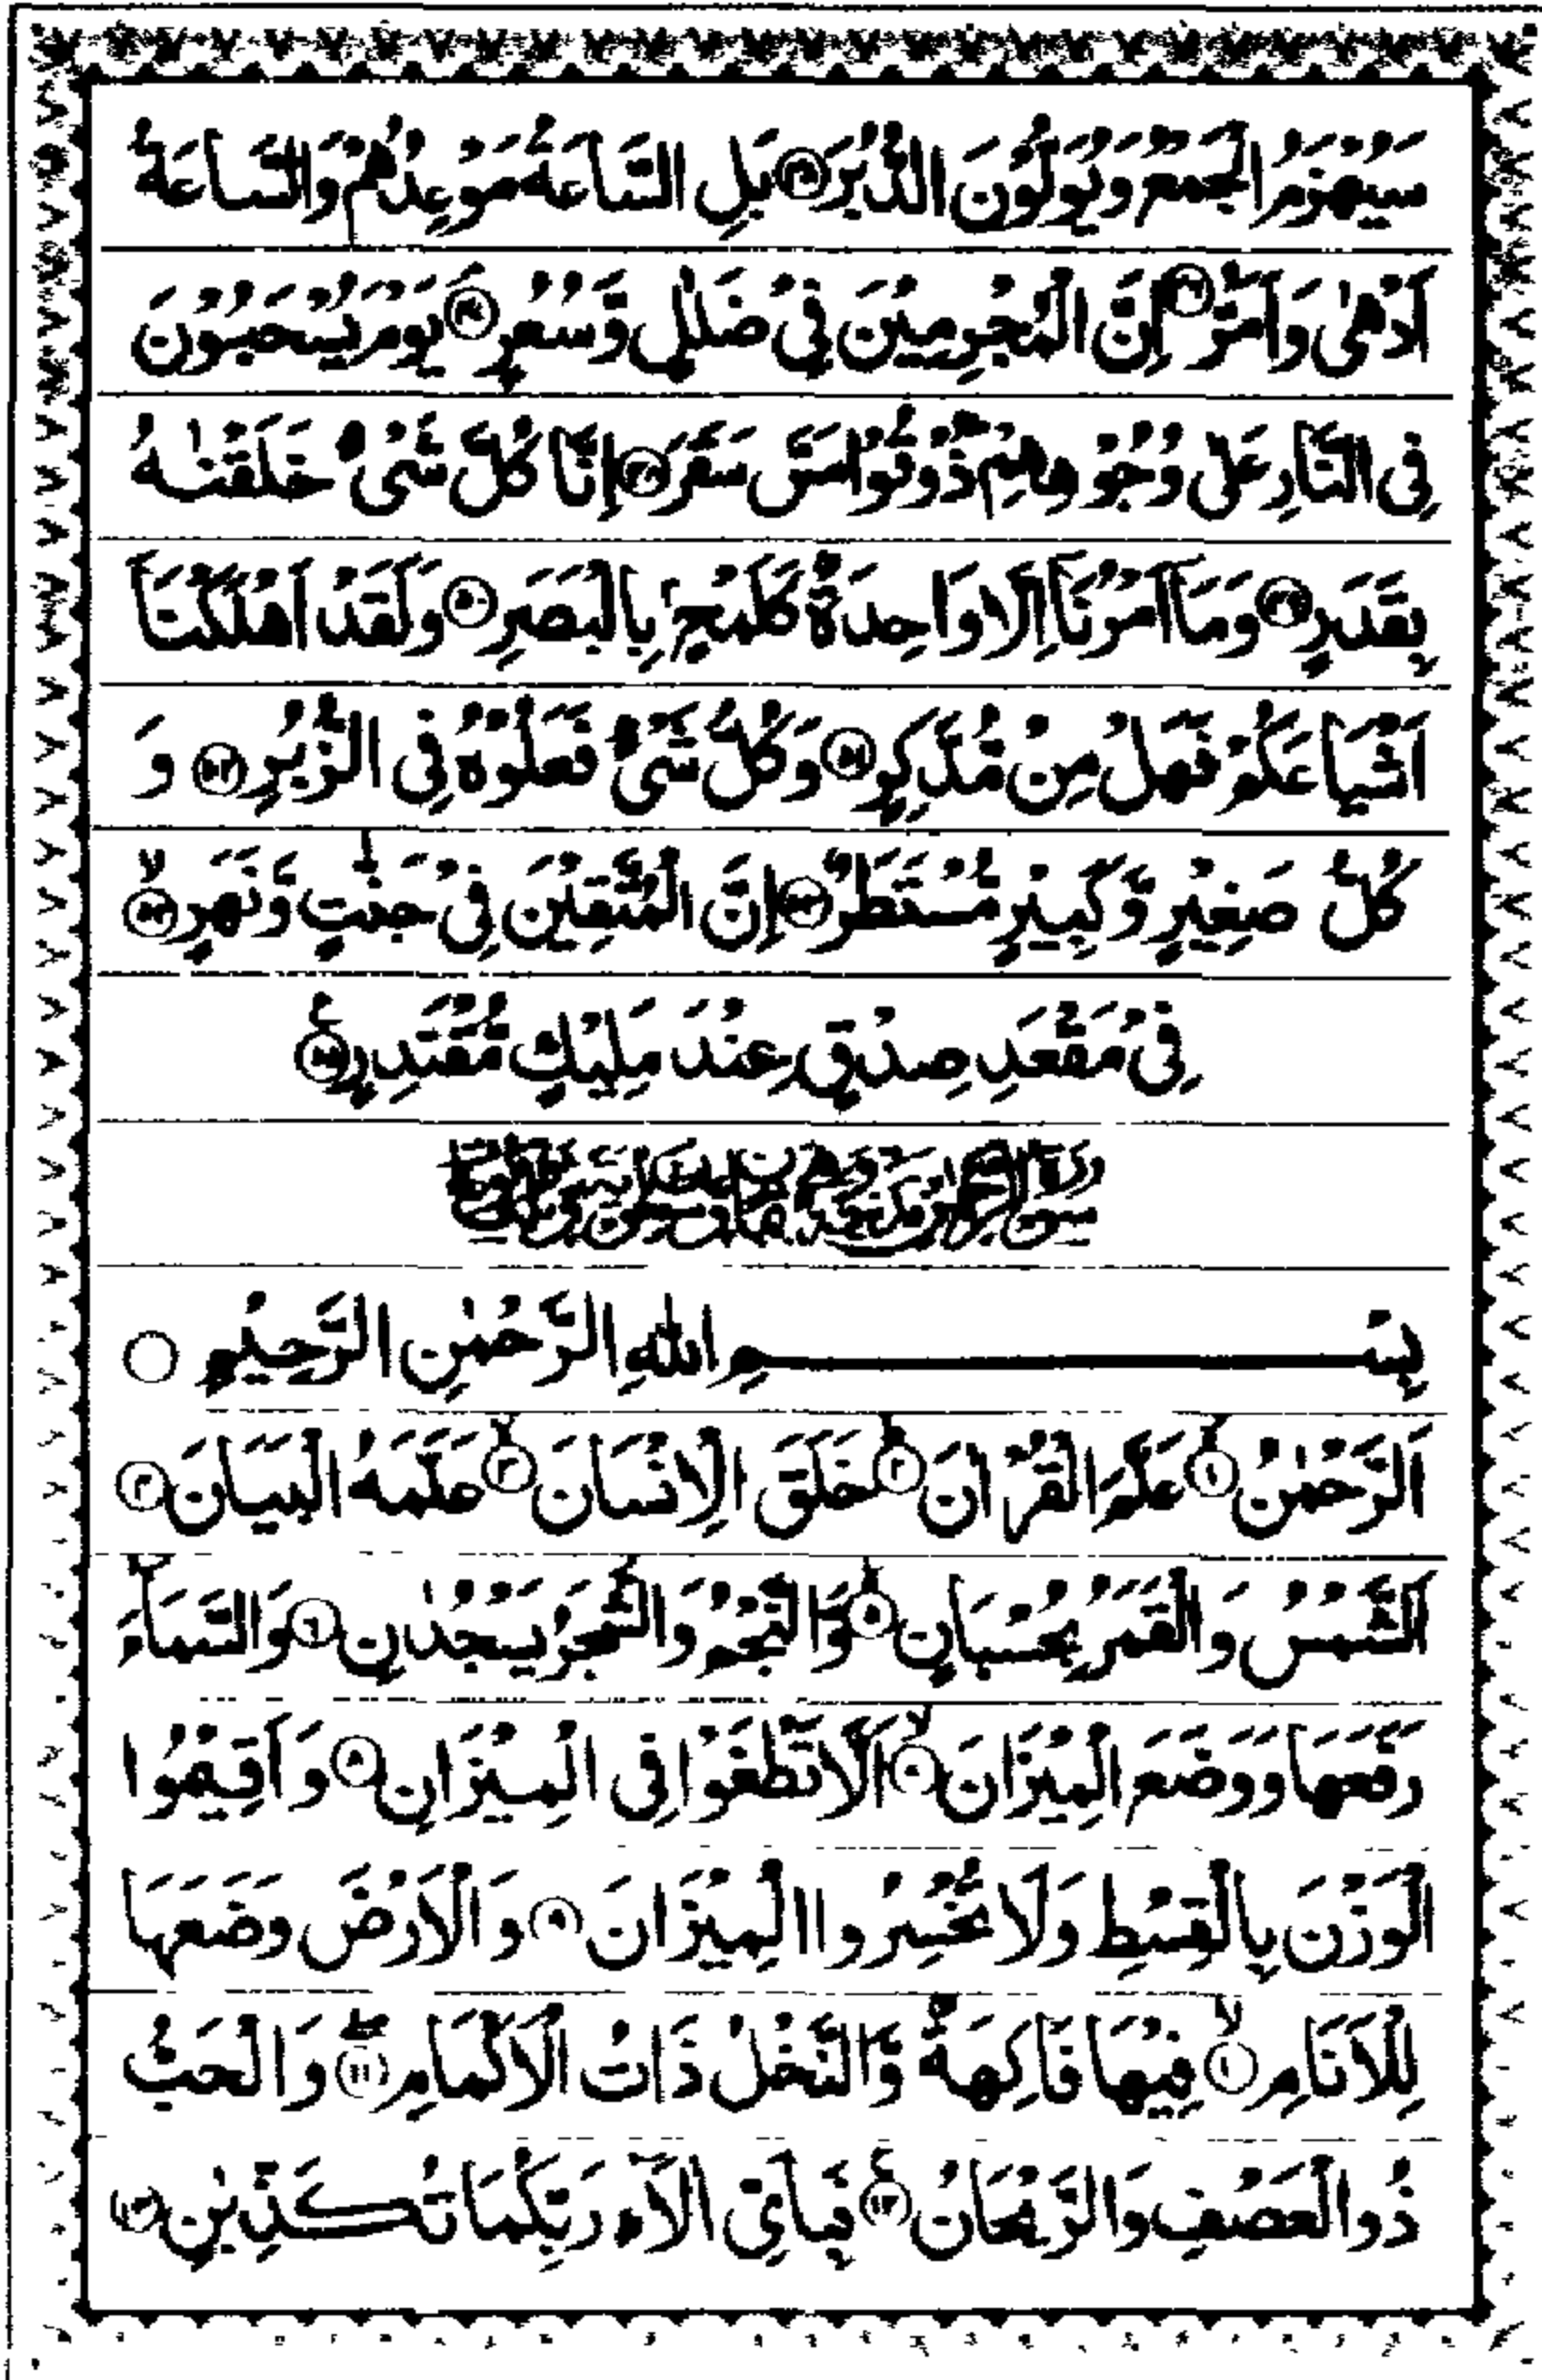 سَيُهْزَمُ الْجَمْعُ وَيُوَلُّوْنَ الدُّبُرَ ﴿۴۵﴾ بَلِ السَّاعَةُ مَوْعِدُهُمْ وَالسَّاعَةُ
اَدْهٰى وَاَمَرُّ ﴿۴۶﴾ اِنَّ الْمُجْرِمِيْنَ فِىْ ضَلٰلٍ وَّسُعُرٍ ﴿۴۷﴾ يَوْمَ يُسْحَبُوْنَ
فِى النَّارِ عَلٰى وُجُوْهِهِمْ ذُوْقُوْا مَسَّ سَقَرَ ﴿۴۸﴾ اِنَّا كُلَّ شَىْءٍ خَلَقْنٰهُ
بِقَدَرٍ ﴿۴۹﴾ وَمَاۤ اَمْرُنَاۤ اِلَّا وَاحِدَةٌ كَلَمْحٍۭ بِالْبَصَرِ ﴿۵۰﴾ وَلَقَدْ اَهْلَكْنَاۤ
اَشْيَاعَكُمْ فَهَلْ مِنْ مُّدَّكِرٍ ﴿۵۱﴾ وَكُلُّ شَىْءٍ فَعَلُوْهُ فِى الزُّبُرِ ﴿۵۲﴾ وَ
كُلُّ صَغِيْرٍ وَّكَبِيْرٍ مُّسْتَطَرٌ ﴿۵۳﴾ اِنَّ الْمُتَّقِيْنَ فِىْ جَنّٰتٍ وَّنَهَرٍ ﴿۵۴﴾ۙ
فِىْ مَقْعَدِ صِدْقٍ عِنْدَ مَلِيْكٍ مُّقْتَدِرٍ ﴿۵۵﴾ع
بِسْمِ اللهِ الرَّحْمٰنِ الرَّحِيْمِ ○
اَلرَّحْمٰنُ ﴿۱﴾ۙ عَلَّمَ الْقُرْاٰنَ ﴿۲﴾ؕ خَلَقَ الْاِنْسَانَ ﴿۳﴾ۙ عَلَّمَهُ الْبَيَانَ ﴿۴﴾
اَلشَّمْسُ وَالْقَمَرُ بِحُسْبَانٍ ﴿۵﴾ وَّالنَّجْمُ وَالشَّجَرُ يَسْجُدٰنِ ﴿۶﴾ وَالسَّمَآءَ
رَفَعَهَا وَوَضَعَ الْمِيْزَانَ ﴿۷﴾ۙ اَلَّا تَطْغَوْا فِى الْمِيْزَانِ ﴿۸﴾ وَاَقِيْمُوا
الْوَزْنَ بِالْقِسْطِ وَلَا تُخْسِرُوا الْمِيْزَانَ ﴿۹﴾ وَالْاَرْضَ وَضَعَهَا
لِلْاَنَامِ ﴿۱۰﴾ۙ فِيْهَا فَاكِهَةٌ وَّالنَّخْلُ ذَاتُ الْاَكْمَامِ ﴿۱۱﴾ۖ وَالْحَبُّ
ذُوالْعَصْفِ وَالرَّيْحَانُ ﴿۱۲﴾ۚ فَبِاَىِّ اٰلَآءِ رَبِّكُمَا تُكَذِّبٰنِ ﴿۱۳﴾